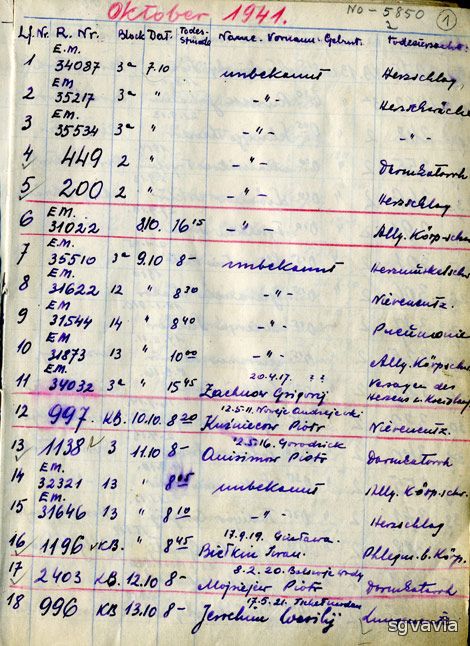 Oktober 1941.
NO-5850
1
Lf. Nr. R. Nr. Block Dat. Todes- Stunde Name. Vorname. Geburt. Todesursache
1 E.M. 34087 3a 7.10 unbekannt Herzschlag
2 E.M. 35217 3a " -"- Herzschwäche
3 E.M. 35534 3a " -"- -"-
4 449 2 " -"- Darmkatarrh
5 200 2 " -"- Herzschlag
6 E.M. 31022 8.10. 16 15 Allg. Körp. schw.
7 E.M. 35510 3a 9.10 8- unbekannt
8 E.M. 31622 12 " 8 30 -"- Nierenentz.
9 E.M. 31544 14 " 8 40 -"- Pneumonie
10 E.M. 31873 13 " 10 00 -"- Allg. Körpschw.
11 E.M. 34032 3a " 15 45 20.4.17. ? ? Versagen des
Zachnow Grigorij Herzens u. Kreislauf
12 997. KB. 10.10. 8 20 12.5.11.
Kuśniecow Piotr Nierenentz.
13 1138 3 11.10 8- 12.5.16. Gorodnick
Anisimow Piotr Darmkatarrh
14 E.M. 32321 13 " 8 05 unbekannt Allg. Körp. schw.
15 E.M. 31646 13 " 8 10 -"- Herzschlag
16 1196 KB. " 8 45 17.9.19.
Biełkin Iwan. Phlegm. b. Körp.
17 2403 KB. 12.10 8- 8.2.20.
Mojsiejew Piotr Darmkatarrh
18 996 KB 13.10 8- 17.5.21.
Jerochin Wasilij
sgvavia